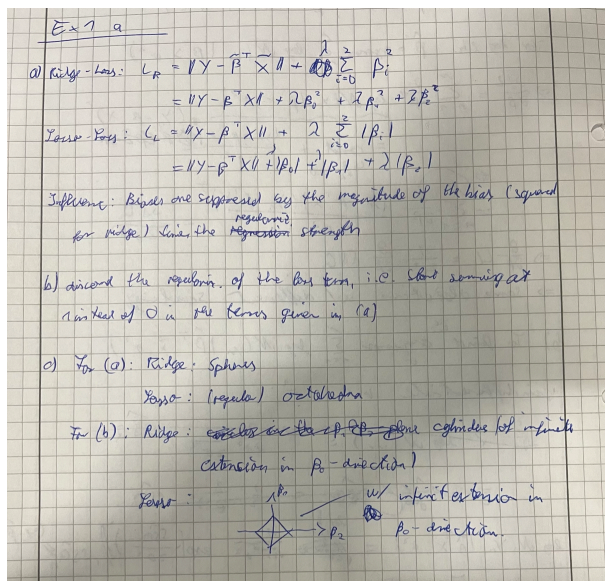 Ex 1 a
a) Ridge-Loss: L_R = ||Y - β̃^T X̃|| + λ Σ_{i=0}^{2} β_i^2
= ||Y - β^T X|| + λβ_0^2 + λβ_1^2 + λβ_2^2
Lasso-Loss: L_L = ||Y - β^T X|| + λ Σ_{i=0}^{2} |β_i|
= ||Y - β^T X|| + λ|β_0| + λ|β_1| + λ|β_2|
Influence: Biases are suppressed by the magnitude of the bias (squared
for ridge) times the regulariz. strength
b) discard the regulariz. of the bias term, i.e. start summing at
1 instead of 0 in the terms given in (a)
c) For (a): Ridge: Spheres
Lasso: (regular) octahedra
For (b): Ridge: cylinder (of infinite
extension in β_0-direction)
Lasso:
β_1
β_2
w/ infinit extension in
β_0-direction.